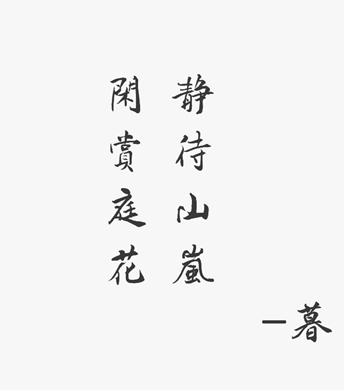 静待山嵐
閑賞庭花
—暮